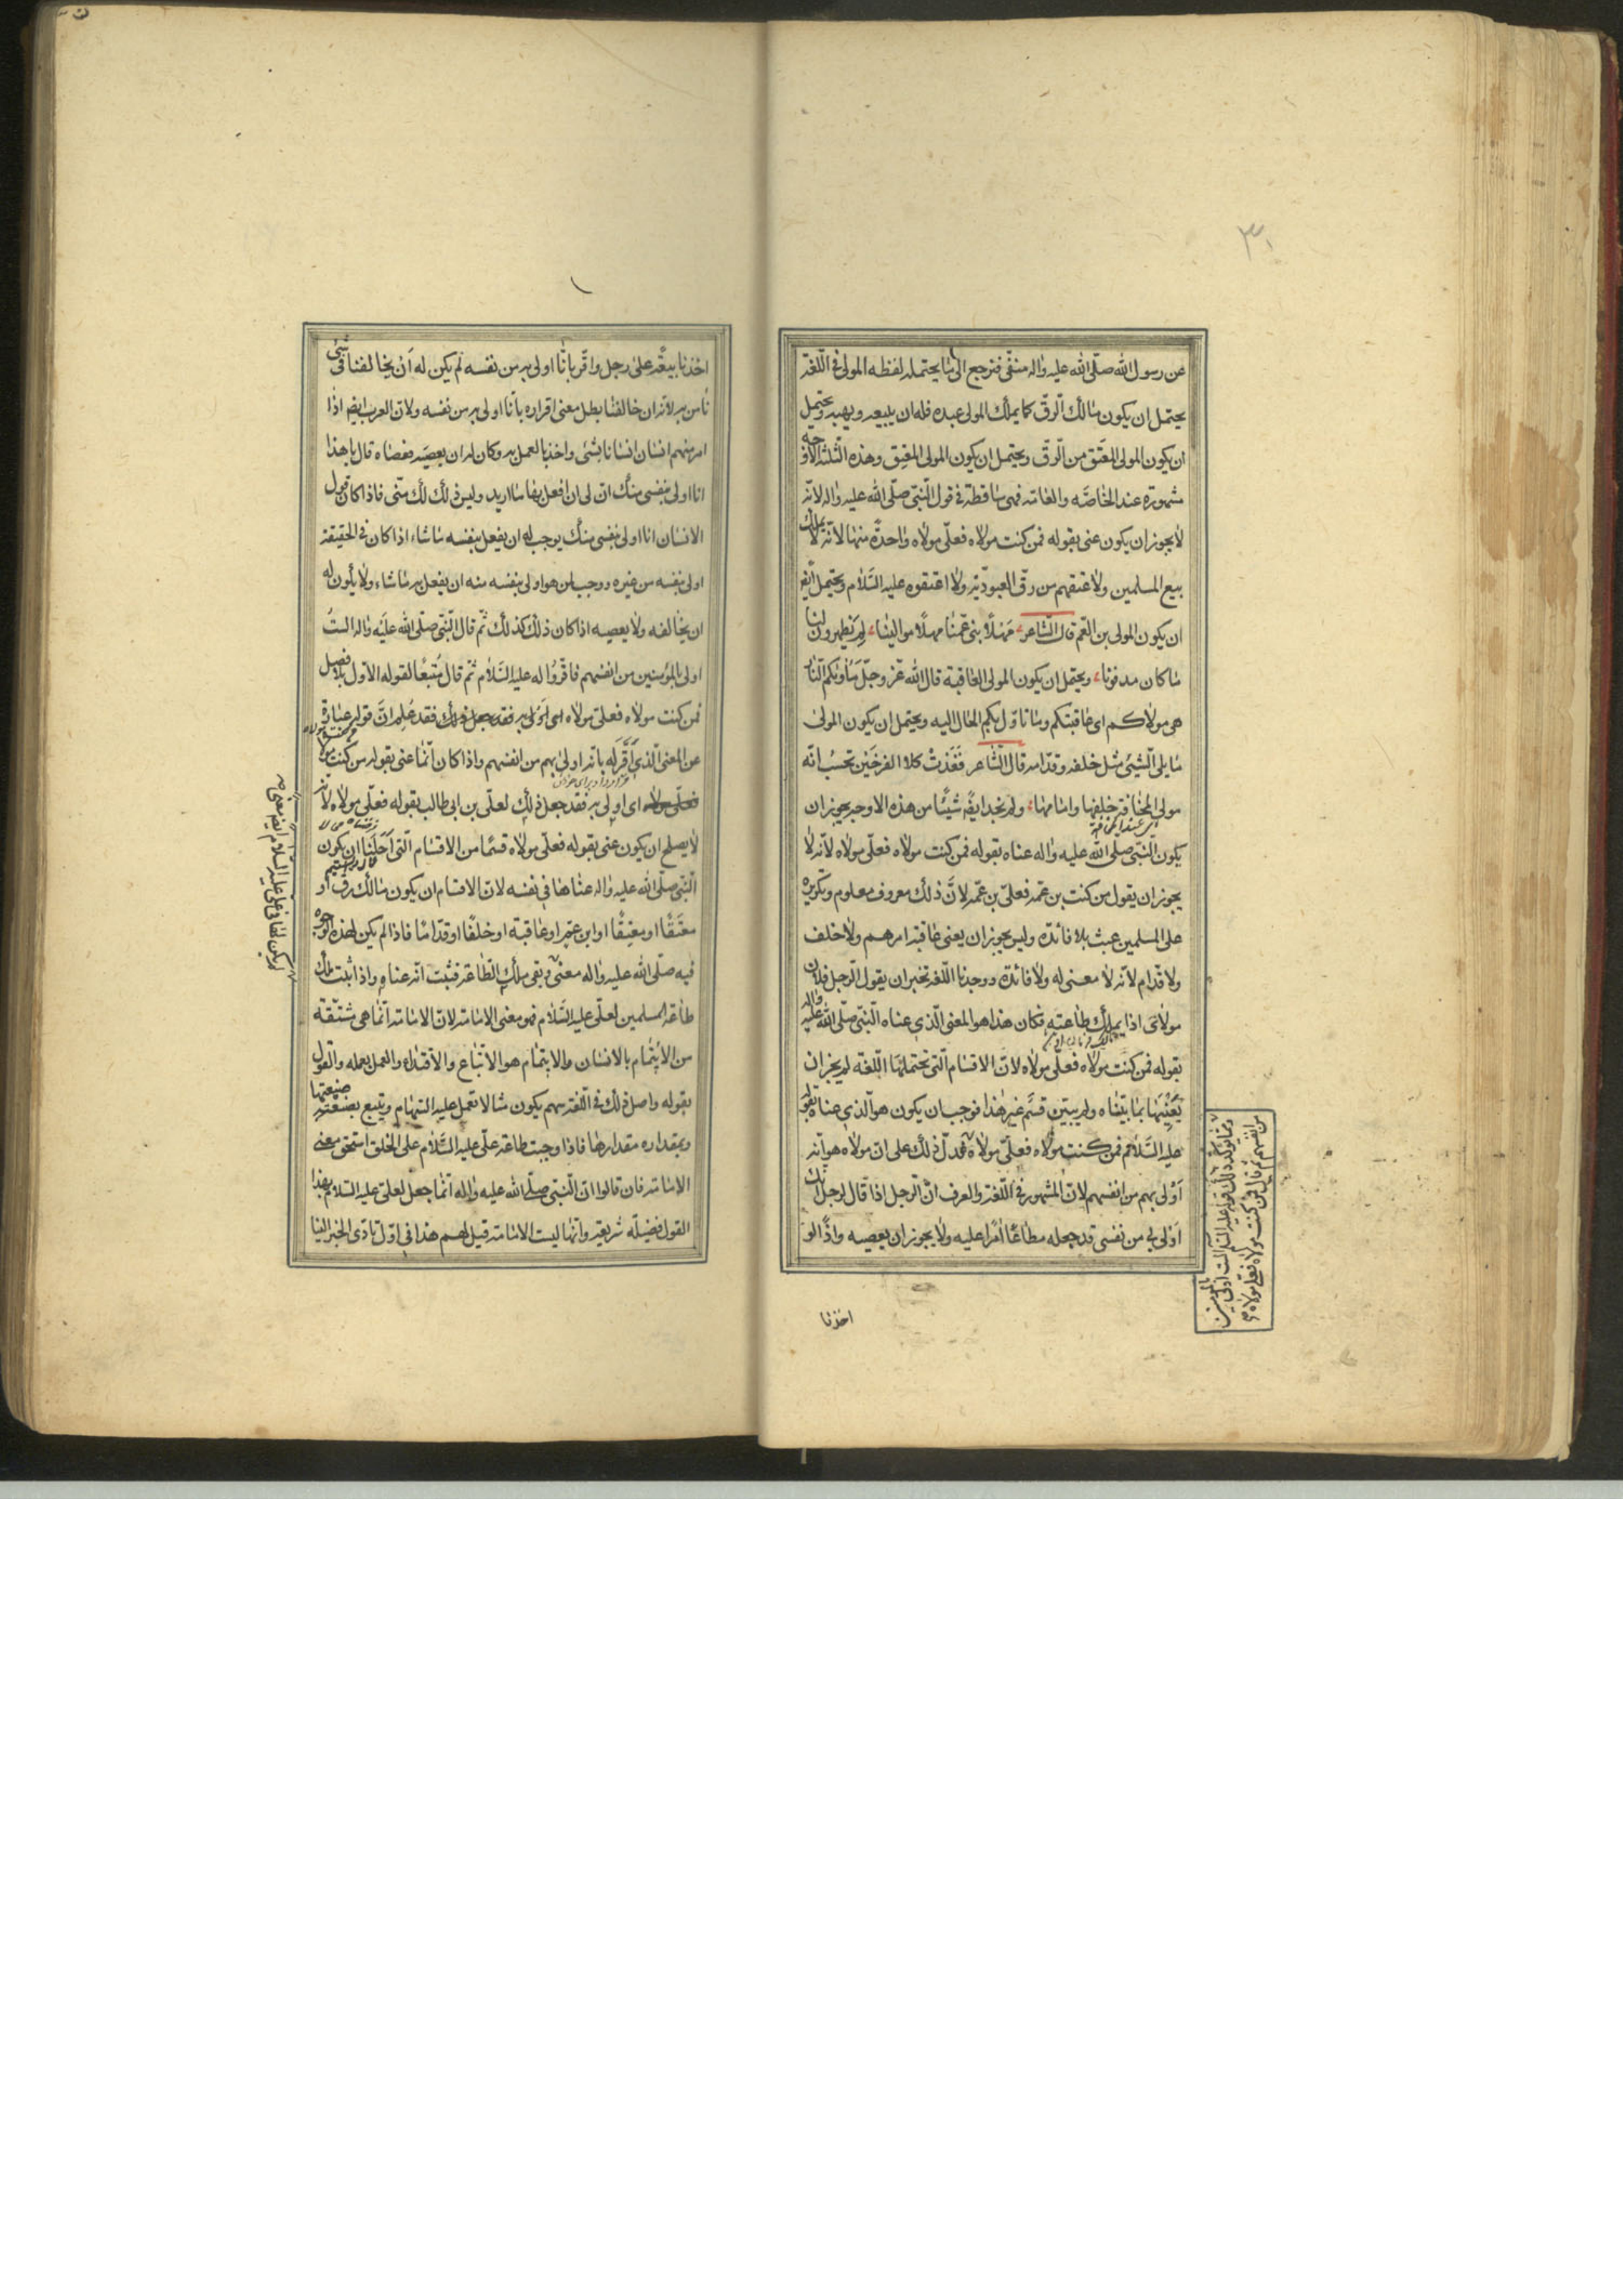 ٣٠
عن رسول الله صلّى الله عليه واله منفّى فنرجع الى ما يحتمله لفظه المولى فى اللّغة
يحتمل ان يكون مالك الرّقّ كما يملك المولى عبده فله ان يبيعه ويهبه ويحتمل
ان يكون المولى المعتَق من الرّقّ ويحتمل ان يكون المولى المعتِق وهذه الثّلثة الاوجه
مشهورة عند الخاصّه والعامّه فهى ساقطة فى قول النّبىّ صلّى الله عليه واله لانّه
لا يجوز ان يكون عنى بقوله فمن كنت مولاه فعلىّ مولاه واحدةً منها لانّه لا يملك
بيع المسلمين ولا عتقهم من رقّ العبوديّة ولا اعتقوه عليه السّلام ويحتمل ايضا
ان يكون المولى بن العّم قال الشّاعر مَهْلاً بنى عمّنا مهلاً موالينا لِمَ تظهرون لنا
ما كان مدفونا ويحتمل ان يكون المولى العاقبة قال الله عزّ وجلّ مَأواٰكم النّار
هى مولاٰكم اى عاقبتكم وما تاؤل بكم الحال اليه ويحتمل ان يكون المولىٰ
ما يلى الشّيئى مثل خلفه وقدّامه قال الشّاعر فَغَدَتْ كلا الفرجَيْن تحسبُ انّه
مولى المخافة خلفها وامامها ولم نجد ايضًا شيئًا من هذه الاوجه يجوز ان
يكون النّبىّ صلّى الله عليه واله عناه بقوله فمن كنت مولاه فعلىّ مولاه لانّه لا
يجوز ان يقول من كنت بن عمّه فعلىّ بن عمّه لانَّ ذلك معروف معلوم وتكريره
على المسلمين عبث بلا فائدة وليس يجوز ان يعنى عاقبة امرهم ولا خلف
ولا قدّام لانّه لا معنى له ولا فائدة ووجدنا اللّغة تخبر ان يقول الرّجل فلان
مولاىَ اذا يملك طاعته فكان هذا هو المعنى الّذى عناه النّبىّ صلّى الله عليه واله
بقوله فمن كنت مولاه فعلىّ مولاه لانّ الاقسام الّتى تحتملها اللّغة لم يجز ان
يَعْنيَها بما بيّنّاه ولم يبين قسَم غير هذا فوجب ان يكون هو الّذى عناه بقوله
عليه السّلام فمن كنت مولاه فعلىّ مولاه فدلّ ذلك على انّ مولاه هو انّه
اَوْلى بهم من انفسهم لانّ المشهور فى اللّغة والعرف انّ الرّجل اذا قال لرجل انك
اَوْلى بى من نفسى قد جعله مطاعًا امرًا عليه ولا يجوز ان يعصيه واذًا لو
اخذنا
وممّا يؤكد ذلك قوله عليه السّلم الست اولى بالمؤمنين
من انفسهم ثم قال فمن كنت مولاه فعلىّ مولاه
اخذنا بيعةً على رجل واقّر بانّا اولى به من نفسه لم يكن له اَنْ يخالفنا فى شىء
نأمره به لانّه ان خالفنا بطل معنى اقراره بأنّا اولى به من نفسه ولانّ العرب ايضا اذا
امر منهم انسان انسانا بشئى واخذه بالعمل به وكان له ان يعصيَه فعصاه قال يا هذا
انا اولى بنفسى منك انّ لى ان افعل بها ما اريد وليس ذلك لك منّى فاذا كان قول
الانسان انا اولى بنفسى منك يوجب له ان يفعل بنفسه ما شاء اذا كان فى الحقيقة
اولى بنفسه من غيره ووجب لمن هو اولى بنفسه منه ان يفعل به ما شاء ولا يكون له
ان يخالفه ولا يعصيه اذا كان ذلك كذلك ثمّ قال النّبىّ صلّى الله عليه واله الستُ
اولى بالمؤمنين من انفسهم فاقّروُا له عليه السّلام ثمّ قال مُتبعًا لقوله الاوّل بلا فصل
فمن كنت مولاه فعلىّ مولاه فقد عُلِم انَّ قوله عبارة
عن المعنى الّذى اَقَّر له بانّه اولى بهم من انفسهم واذا كان انّما عنى بقوله من كنت مولاه
اى اولى به فقد جعل ذلك لعلىّ بن ابى طالب بقوله فعلىّ مولاه لانّه
لا يصلح ان يكون عنى بقوله فعلىّ مولاه قسمًا من الاقسام الّتى اَحَلْنا ان يكون
النّبىّ صلّى الله عليه واله عناها فى نفسه لانّ الاقسام ان يكون مالك رقّ او
معتَقًا او معتِقًا او ابن عمّ او عاقبة او خلفًا او قدّامًا فاذا لم يكن لهذه الوجوه
فيه صلّى الله عليه واله معنى وبقى ملك الطّاعة فثبت انّه عناه واذا ثبت ملك
طاعة المسلمين لعلىّ عليه السّلام فهو معنى الامامة لانّ الامامة انّما هى مشتقّة
من الايتمام بالانسان والايتمام هو الاتّباع والاقتداء والعمل بعمله والقول
بقوله واصل ذلك فى اللّغة سهم يكون مثالا تعمل عليه السّهام ويتبع بصنعته صنعتها
وبمقداره مقدارها فاذا وجبت طاعة علىّ عليه السّلام على الخلق استحقّ معنى
الامامة فان قالوا انّ النّبىّ صلّى الله عليه واله انّما جعل لعلىّ عليه السّلام بهذا
القول فضيلة شريفة وانّها ليست الامامة قيل لهم هذا فى اوّل تأدّى الخبر الينا